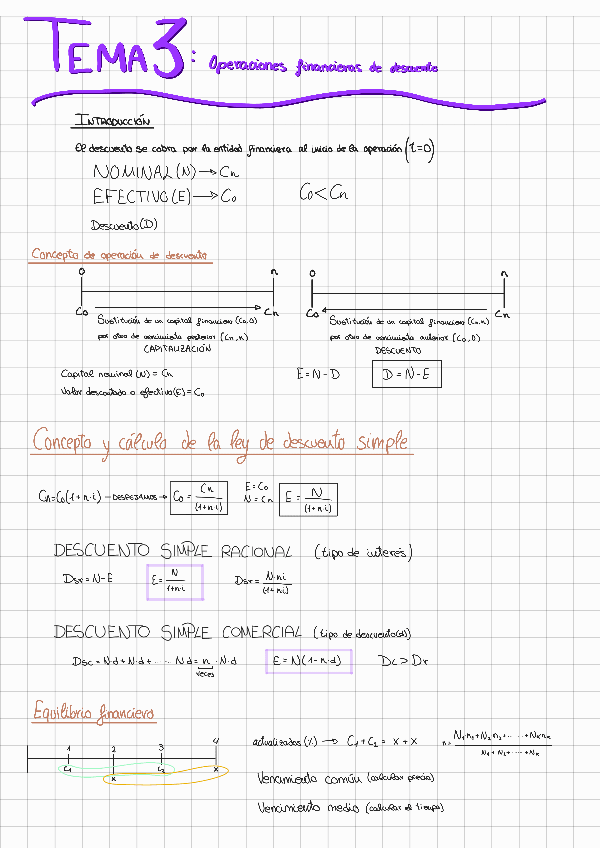 TEMA 3: Operaciones financieras de descuento
INTRODUCCIÓN
El descuento se cobra por la entidad financiera al inicio de la operación (t=0)
NOMINAL (N) → Cn
EFECTIVO (E) → C0
C0 < Cn
Descuento (D)
Concepto de operación de descuento
0 n
C0 Cn
Sustitución de un capital financiero (C0,0)
por otro de vencimiento posterior (Cn,n)
CAPITALIZACIÓN
0 n
C0 Cn
Sustitución de un capital financiero (Cn,n)
por otro de vencimiento anterior (C0,0)
DESCUENTO
Capital nominal (N) = Cn
Valor descontado o efectivo (E) = C0
E = N - D
D = N - E
Concepto y cálculo de la ley de descuento simple
Cn = C0(1+n·i) — DESPEJAMOS → C0 = Cn / (1+n·i)
E = C0
N = Cn
E = N / (1+n·i)
DESCUENTO SIMPLE RACIONAL (tipo de interés)
Dsr = N - E
E = N / 1+n·i
Dsr = N·n·i / (1+n·i)
DESCUENTO SIMPLE COMERCIAL (tipo de descuento(d))
Dsc = N·d + N·d + ..... N·d = n · N·d
veces
E = N(1-n·d)
Dc > Dr
Equilibrio financiero
1 2 3 4
C1 x C2 x
actualizados (%) → C1 + C2 = x + x
n = N1·n1 + N2·n2 + ..... + Nk·nk / N1 + N2 + ..... + Nk
Vencimiento común (calcular precio)
Vencimiento medio (calcular el tiempo)